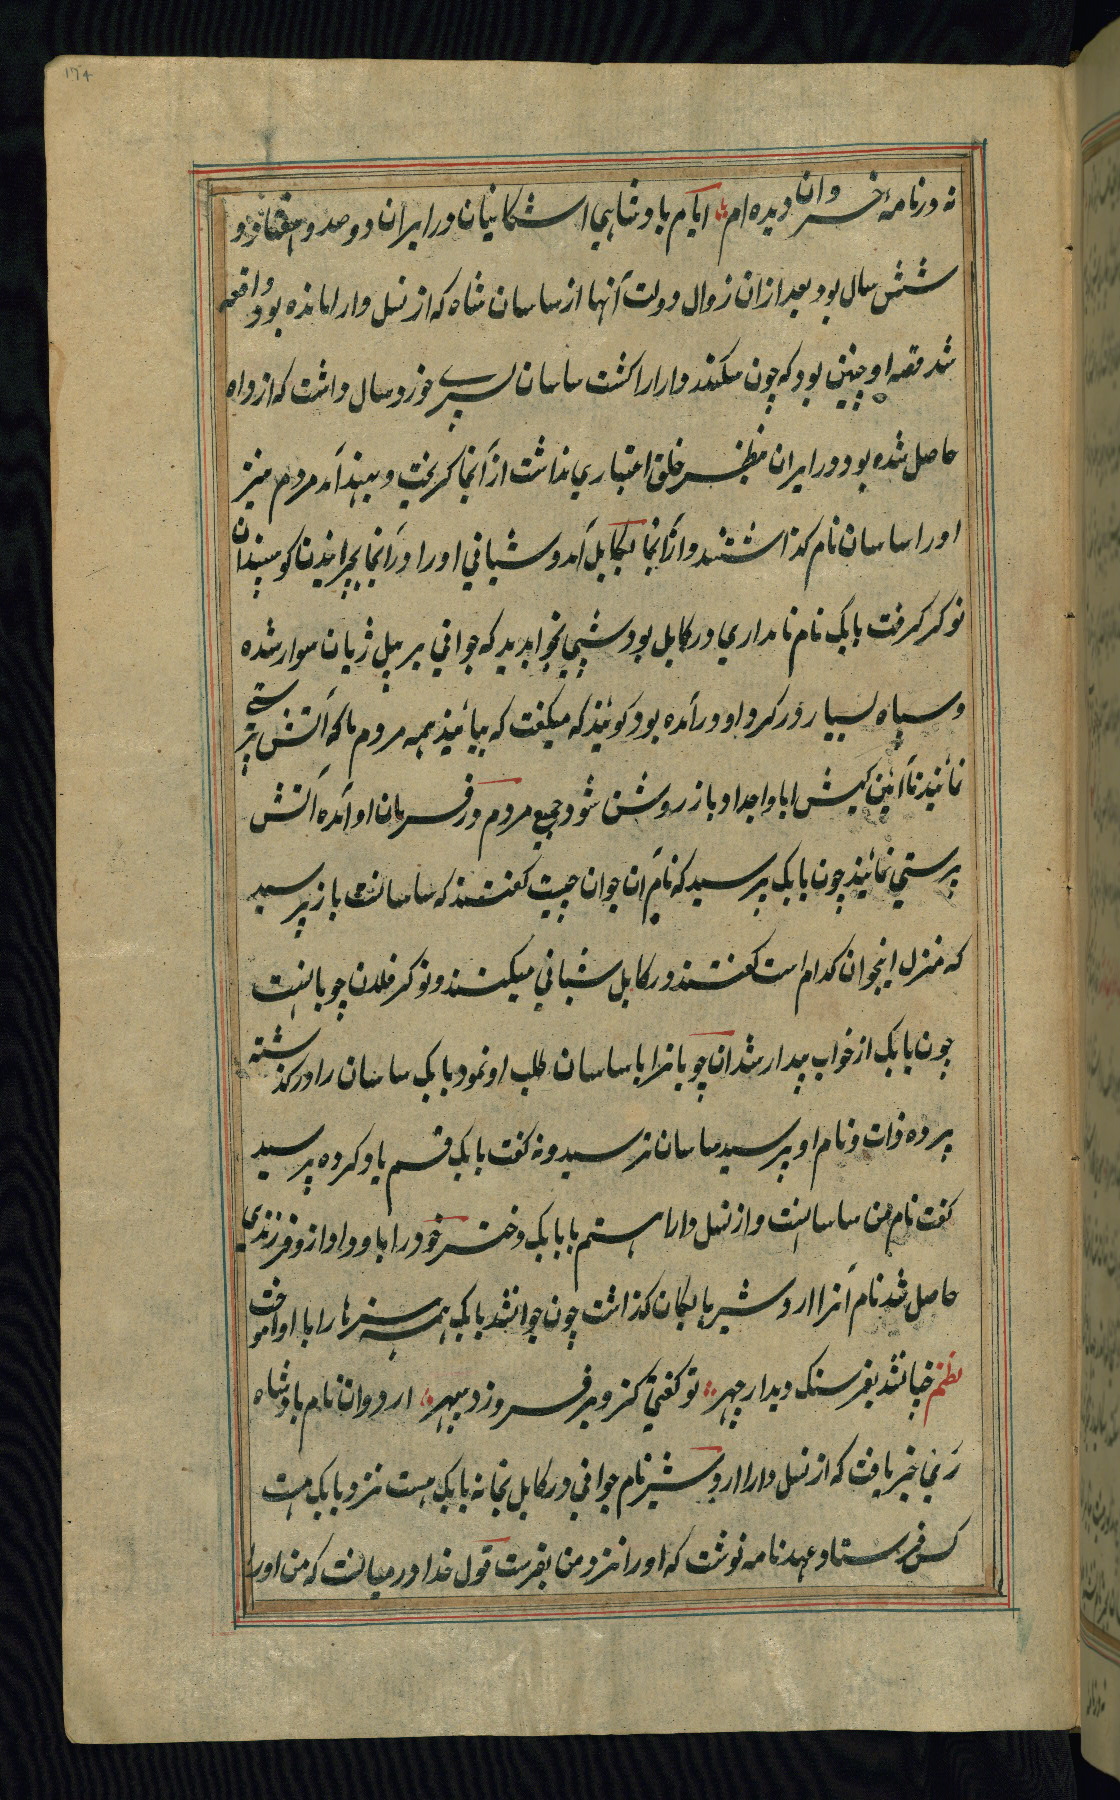 نه در نامهٔ خسروان دیده ام ایام بادشاهی اشکانیان در ایران دو صد و هفتاد و
شش سال بود بعد ازان زوال دولت آنها از ساسان شاه که از نسل دارا مانده بود واقعه
شد قصه او چنین بود که چون سکندر دارا را کشت ساسان پسری خورد سال داشت که ازو
حاصل شده بود در ایران بنظر خلق اعتباری نداشت از آنجا گریخت و بهند آمد مردم نیز
او را ساسان نام گذاشتند و از آنجا بکابل آمد و شبانی او را در آنجا بچرانیدن کوسپندان
نوکر گرفت بابک نام نامداری در کابل بود شبی بخوابدید که جوانی بر پیل ژیان سوار شده
و سپاه بسیار در گرد او در آمده بود گویند که میگفت که بیائید همه مردم تا که آتش پرستی
نمائید تا آئین کیش ابا و اجداد باز روشن شود جمیع مردم در فرمان او آمده آتش
پرستی نمائید چون بابک پرسید که نام آن جوان چیست گفتند که ساسانست باز پرسید
که منزل اینجوان کدام است گفتند در کابل شبانی میکند و نوکر فلان چوپانست
چون بابک از خواب بیدار شد ان چوپانرا با ساسان طلب او نمود بابک ساسان را در گذشته
پرده ذات و نام او پرسید ساسان ترسید و نه گفت بابک قسم یاد کرده پرسید
گفت نام من ساسانست و از نسل دارا هستم بابابک دختر خود را باو داد ازو فرزندی
حاصل شد نام آنرا اردشیر بابکان گذاشت چون جوانشد بابک همه هنرها را با او آموخت
نظم چنانشد بفرهنگ دیدار چهر تو گفتی کزو بر فروزد سپهر اردوان نام بادشاه
ری خبر یافت که از نسل دارا اردشیر نام جوانی در کابل بخانه بابک هست نزد بابک هست
کس فرستاد و عهد نامه نوشت که او را نزد من بفرست قول خدا در میانست که من اورا